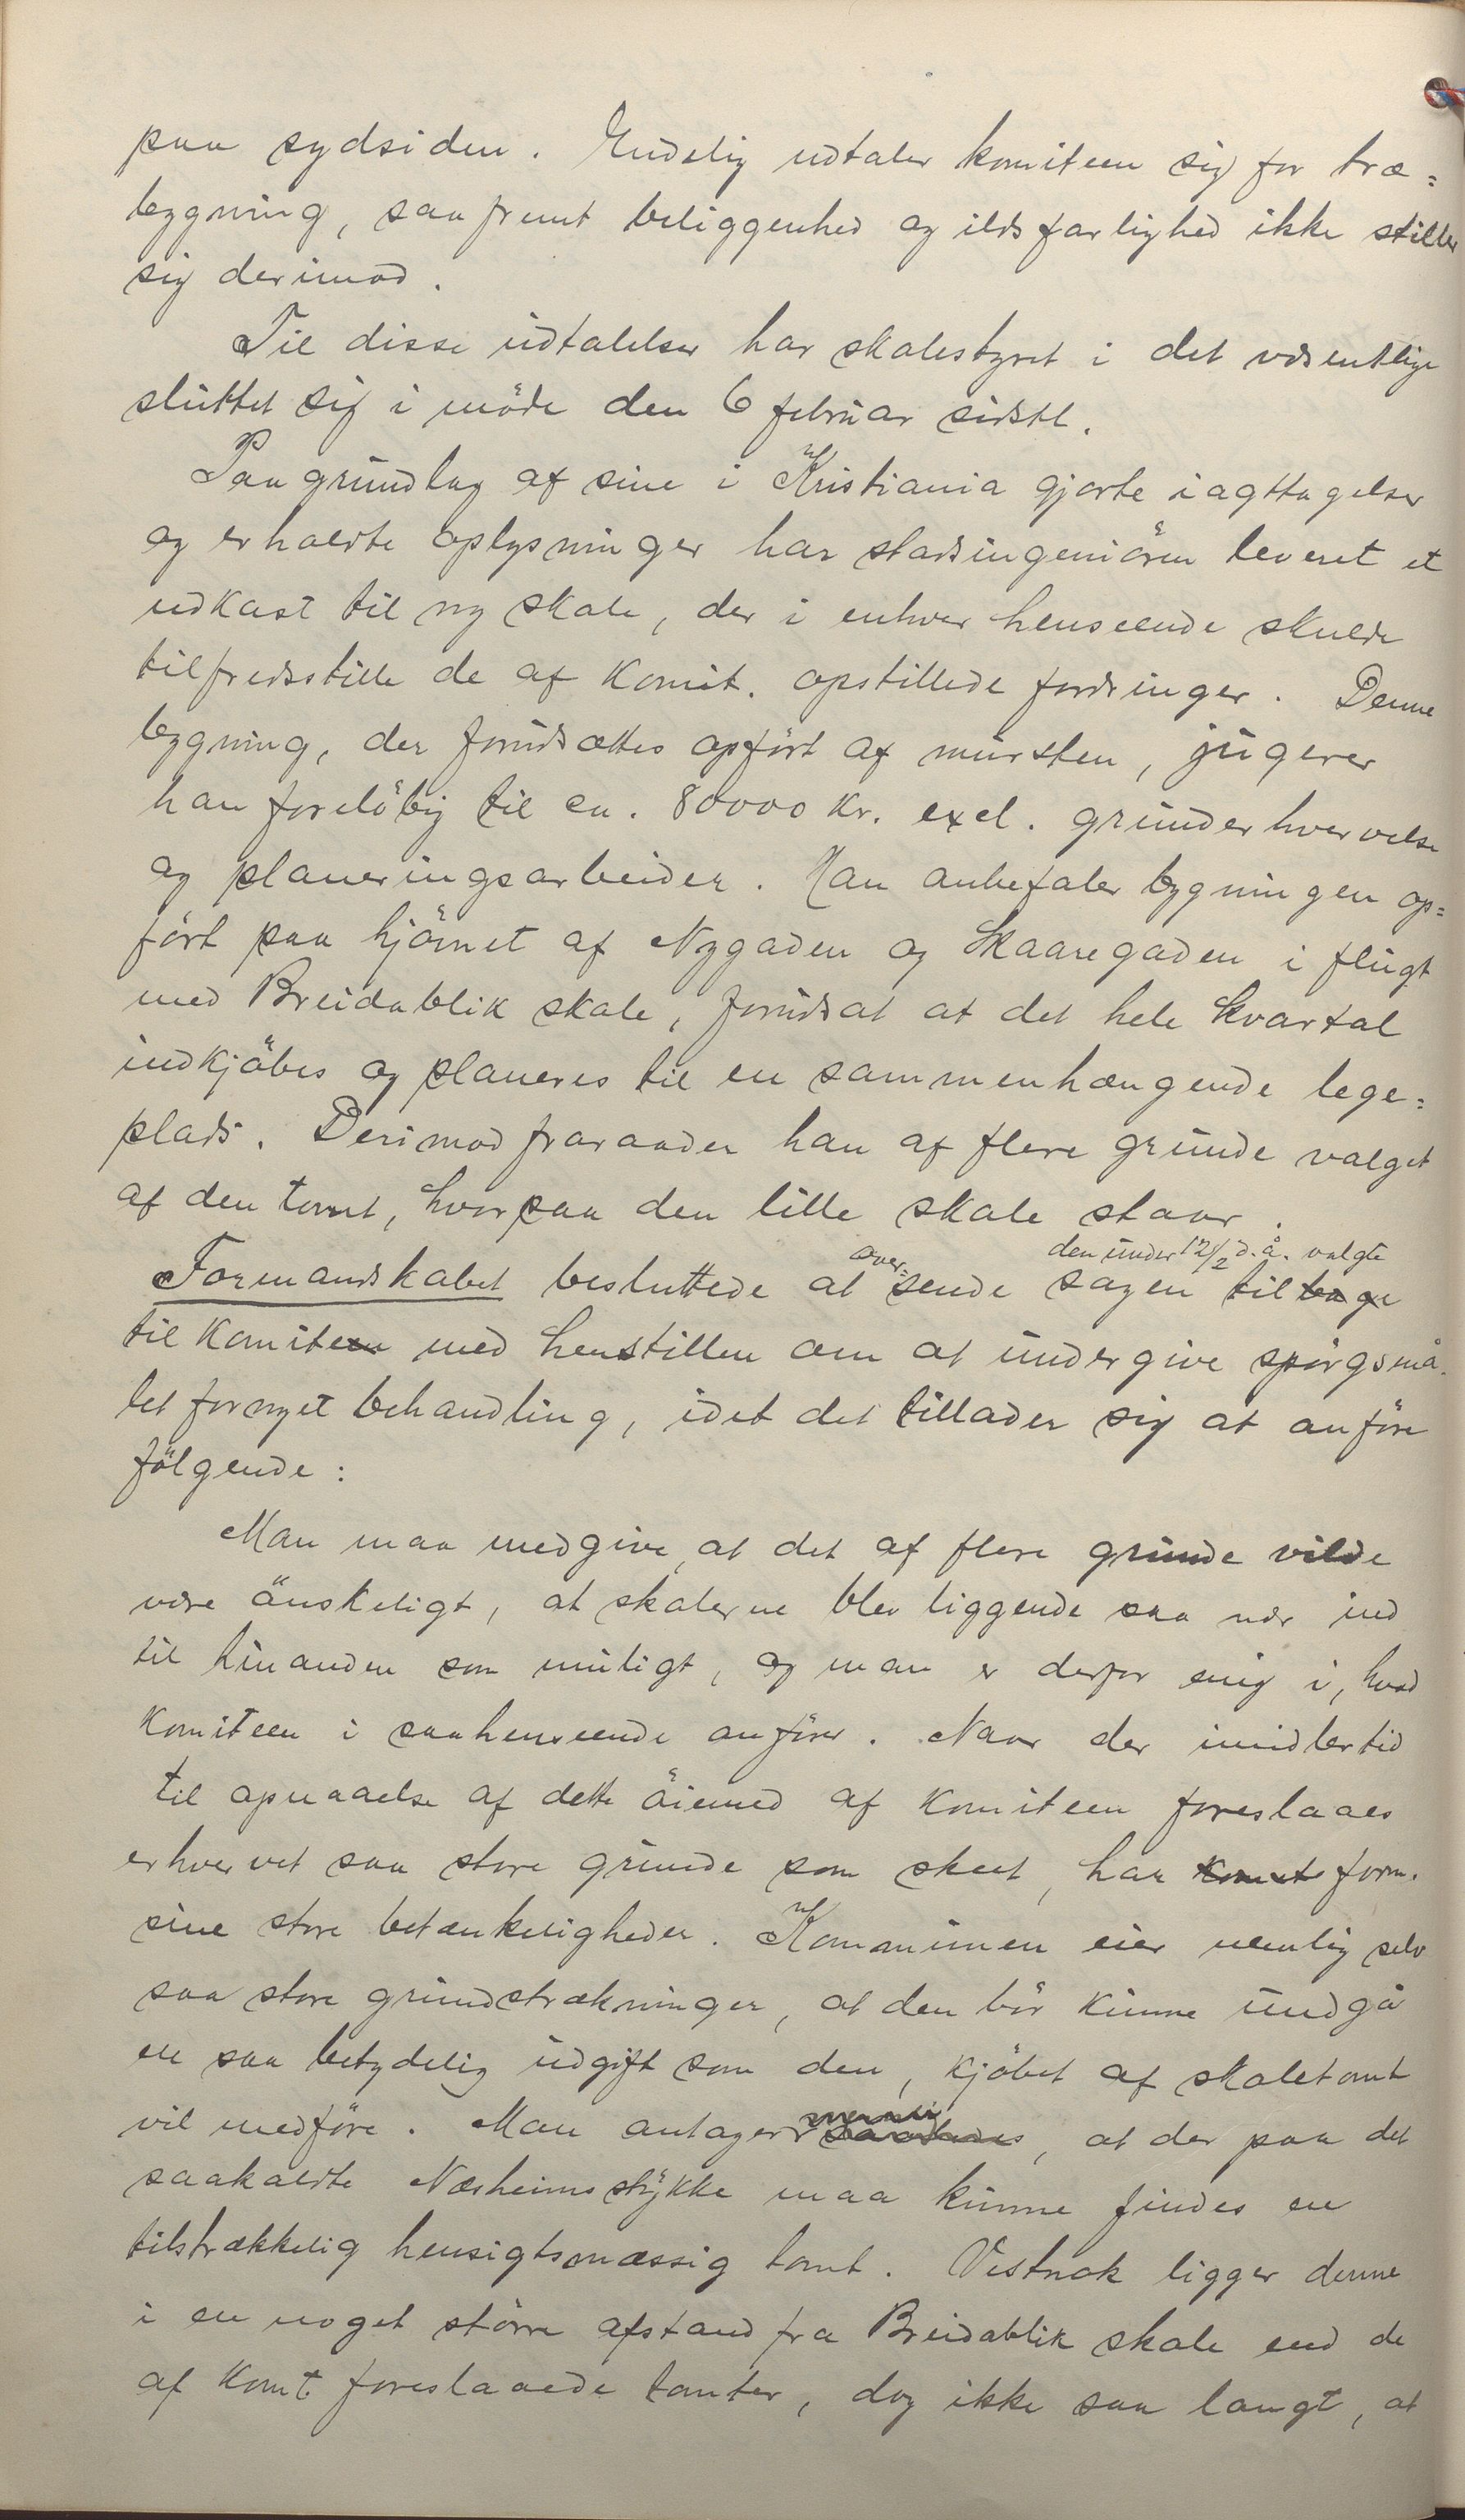 paa sydsiden. Endelig udtaler komiteen sig for træ=
bygning, saafremt beliggenhed og ildsfarlighed ikke stiller
sig derimod.
Til disse udtalelser har skolestyret i det væsentlige
sluttet sig i möde den 6 februar sidstl.
Paa grundlag af sine i Kristiania gjorte iagttagelser
og erholdte oplysninger har stadsingeniören leveret et
udkast til ny skole, der i enhver henseende skulde
tilfredsstille de af komit. opstillede fordringer. Denne
bygning, der forudsættes opfört af mursten, jugerer
han forelöbig til ca. 80000 kr. excl. grunderhvervelse
og planeringsarbeider. Han anbefaler bygningen op=
fört paa hjörnet af Nygaden og Skaaregaden i flugt
med Breidablik skole, forudsat at det hele kvartal
indkjöbes og planeres til en sammenhængende lege=
plads. Derimod fraraader han af flere grunde valget
af den tomt, hvorpaa den lille skole staar.
over= den under 12/2 d.å. valgte
Formandskabet besluttede at sende sagen tilbage
til komiteen med henstillen om at undergive spörgsmå-
let fornyet behandling, idet det tillader sig at anföre
fölgende:
Man maa medgive, at det af flere grunde vilde
være önskeligt, at skolerne blev liggende saa nær ind
til hinanden som muligt, og man er derfor enig i, hvad
komiteen i saa henseende anförer. Naar der imidlertid
til opnaaelse af dette öiemed af komiteen foreslaaes
erhvervet saa store grunde som skeet, har komit form.
sine store betænkeligheder. Kommunen eier nemlig selv
saa store grundstrækninger, at den bör kunne undgå
en saa betydelig udgift som den, kjöbet af skoletomt
vil medföre. Man antager saaledes, at der paa det
saakaldte Næsheimsstykke maa kunne findes en
tilstrækkelig hensigtsmæssig tomt. Vistnok ligger denne
i en noget större afstand fra Breidablik skole end de
af komt. foreslaaede tomter, dog ikke saa langt, at